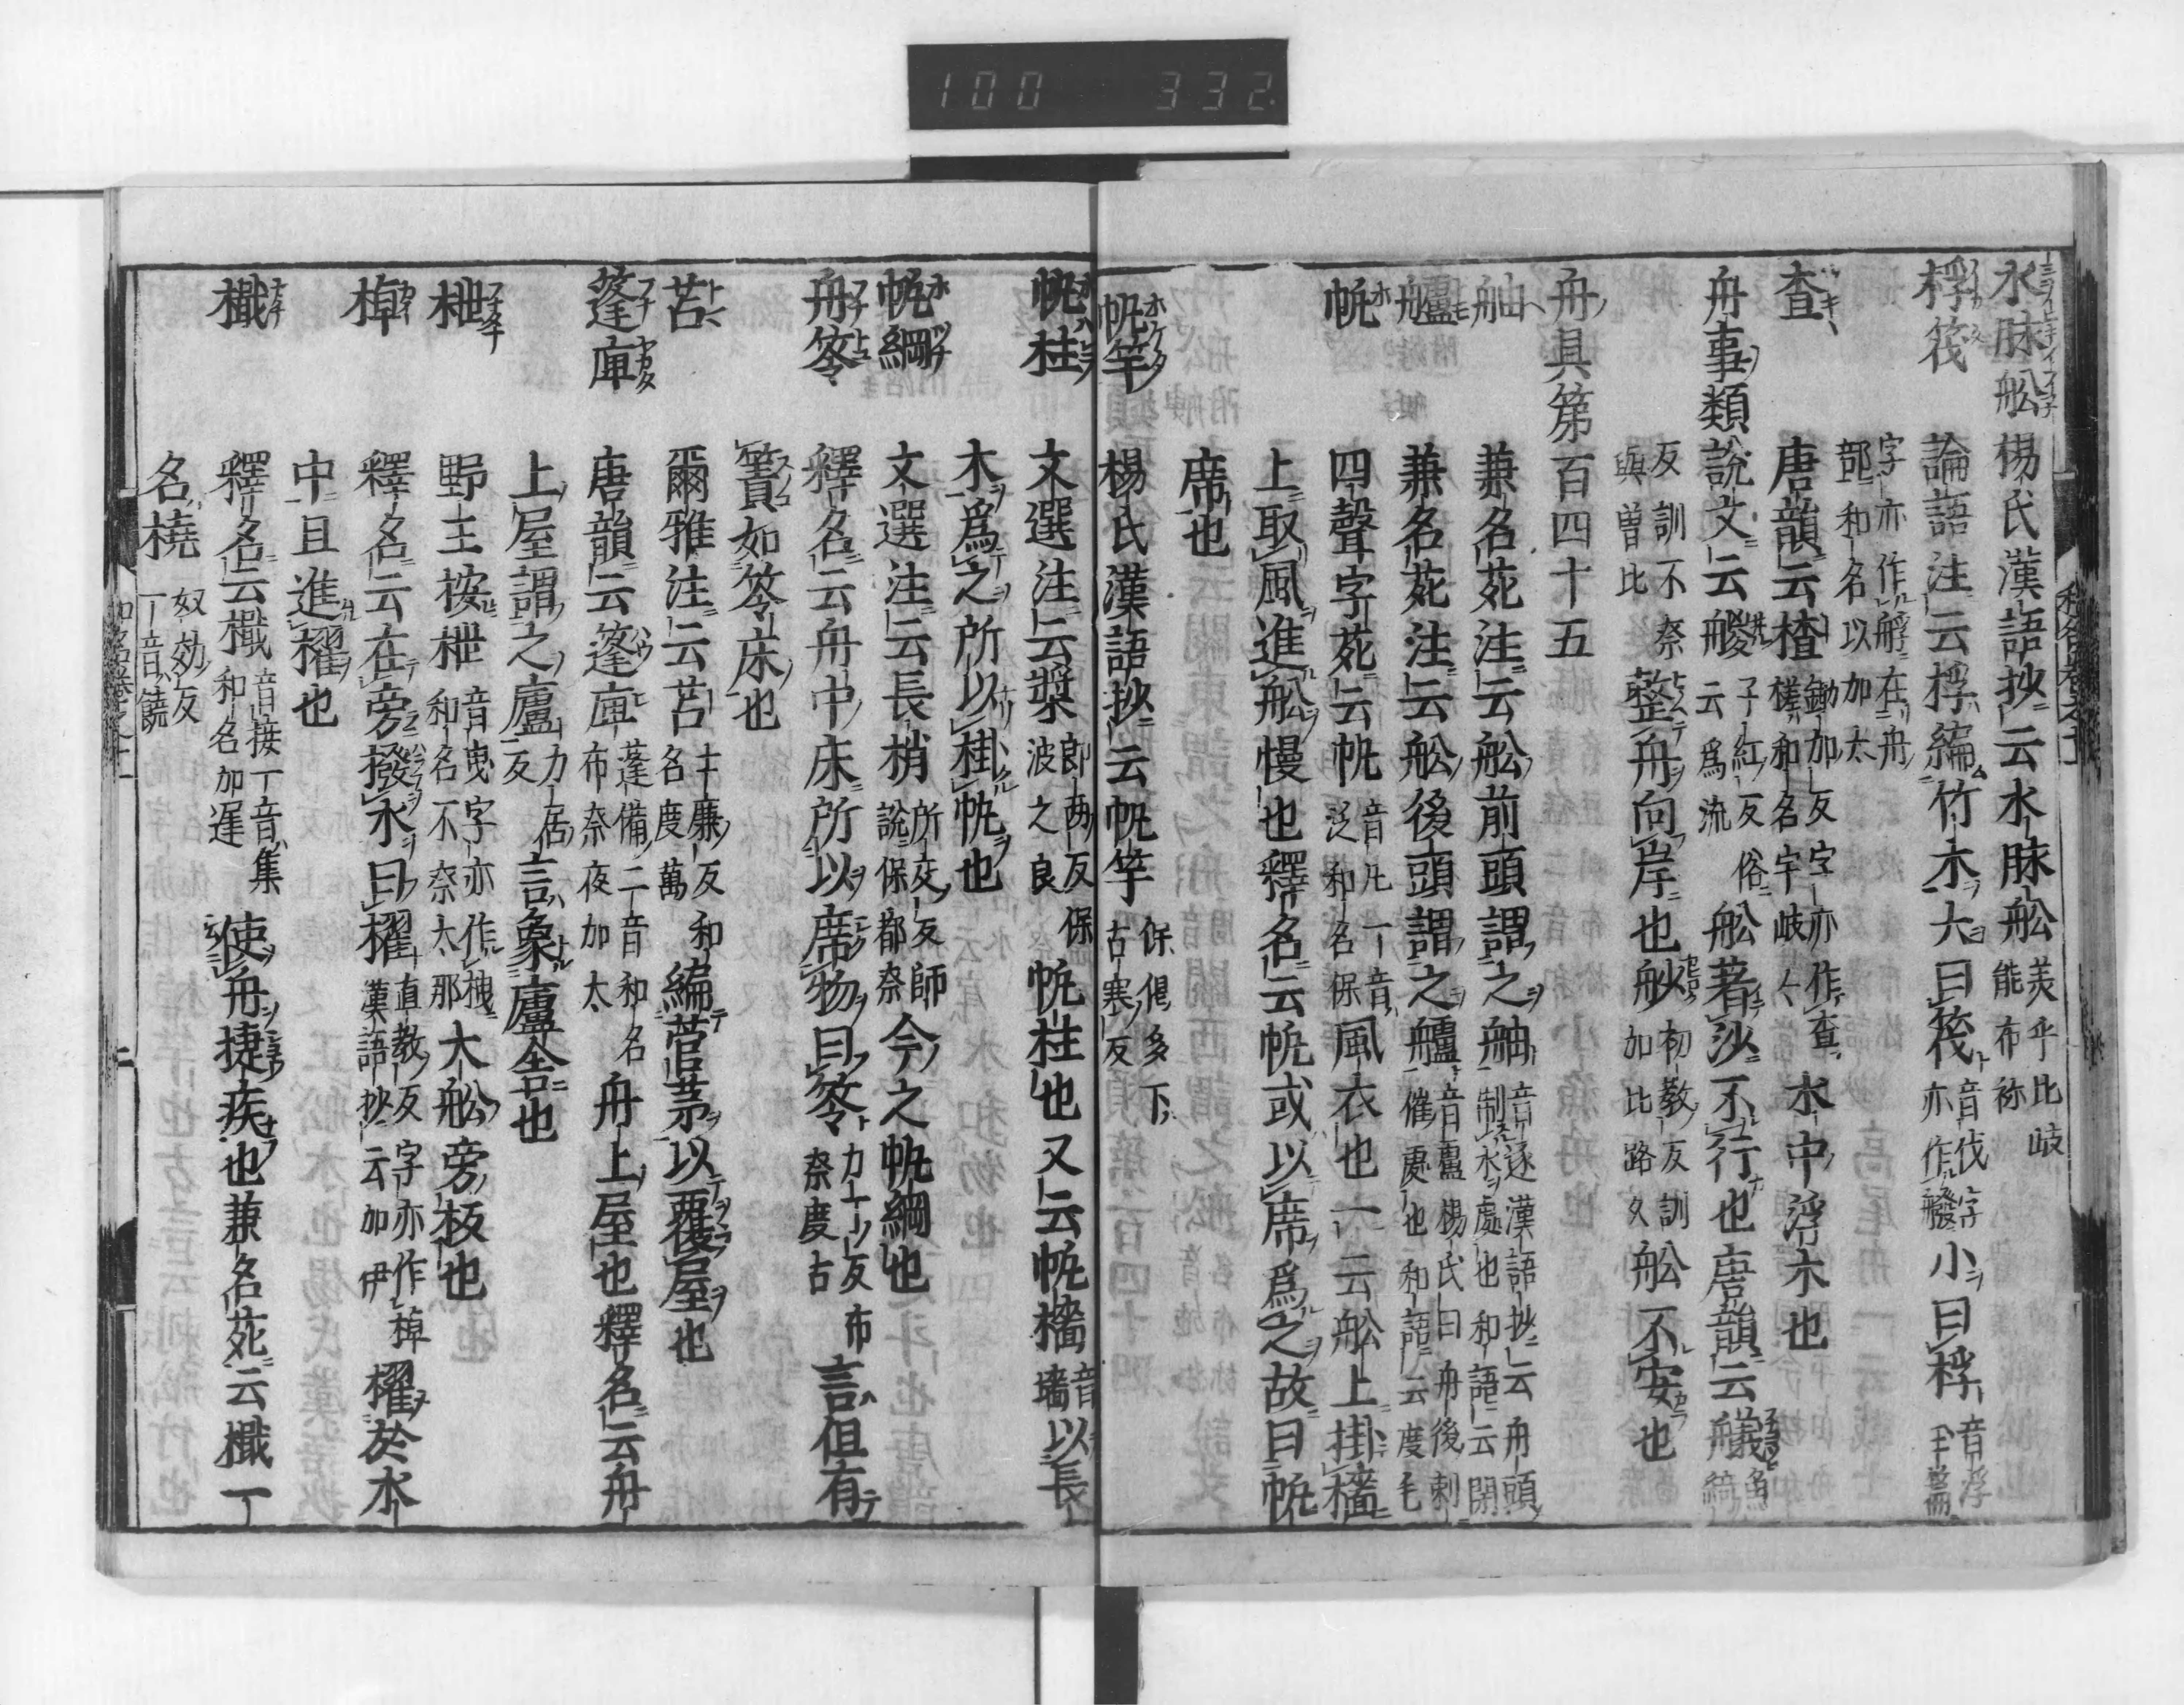 100 332
水脉舩 楊氏漢語抄云水脉舩 美乎比岐能布祢
桴筏 論語注云桴編竹木大曰筏 音伐字亦作𦪑 小曰桴 音浮
字亦作艀在舟部和名以加太
査 唐韻云楂 鋤加反字亦作査槎和名宇岐々 水中浮木也
舟事類 說文云艐 子紅反俗云爲流 舩著沙不行也唐韻云艤 魚綺
反訓不奈與曽比 整舟向岸也䑲 初教反訓加比路久 舩不安也
舟具第百四十五
舳 兼名苑注云舩前頭謂之舳 音逐漢語抄云舟頭制水處也和語云閉
艫 兼名苑注云舩後頭謂之艫 音盧楊氏曰舟後刺催處也和語云度毛
帆 四聲字苑云帆 音凡一音泛和名保 風衣也一云舩上掛檣
上取風進舩慢也釋名云帆或以席爲之故曰帆
席也
帆竿 楊氏漢語抄云帆竿 保偈多下古寒反
帆柱 文選注云槳 郎兩反保波之良 帆柱也又云帆檣 音墻 以長
木爲之所以掛帆也
帆綱 文選注云長梢 所交反師說保都奈 今之帆綱也
舟笭 釋名云舟中床所以席物曰笭 力丁反布奈度古 言但有
簀如笭床也
苫 爾雅注云苫 士廉反和名度萬 編菅茅以覆屋也
篷庫 唐韻云篷庫 蓬備二音和名布奈夜加太 舟上屋也釋名云舟
上屋謂之廬 力居反 言象廬舎也
枻 野王按枻 音曳字亦作栧和名不奈太那 大舩旁板也
棹 釋名云在旁撥水曰櫂 直教反字亦作棹漢語抄云加伊 櫂於水
中且進櫂也
檝 釋名云檝 音接一音集和名加遲 使舟捷疾也兼名苑云檝一
名橈 奴効反一音饒